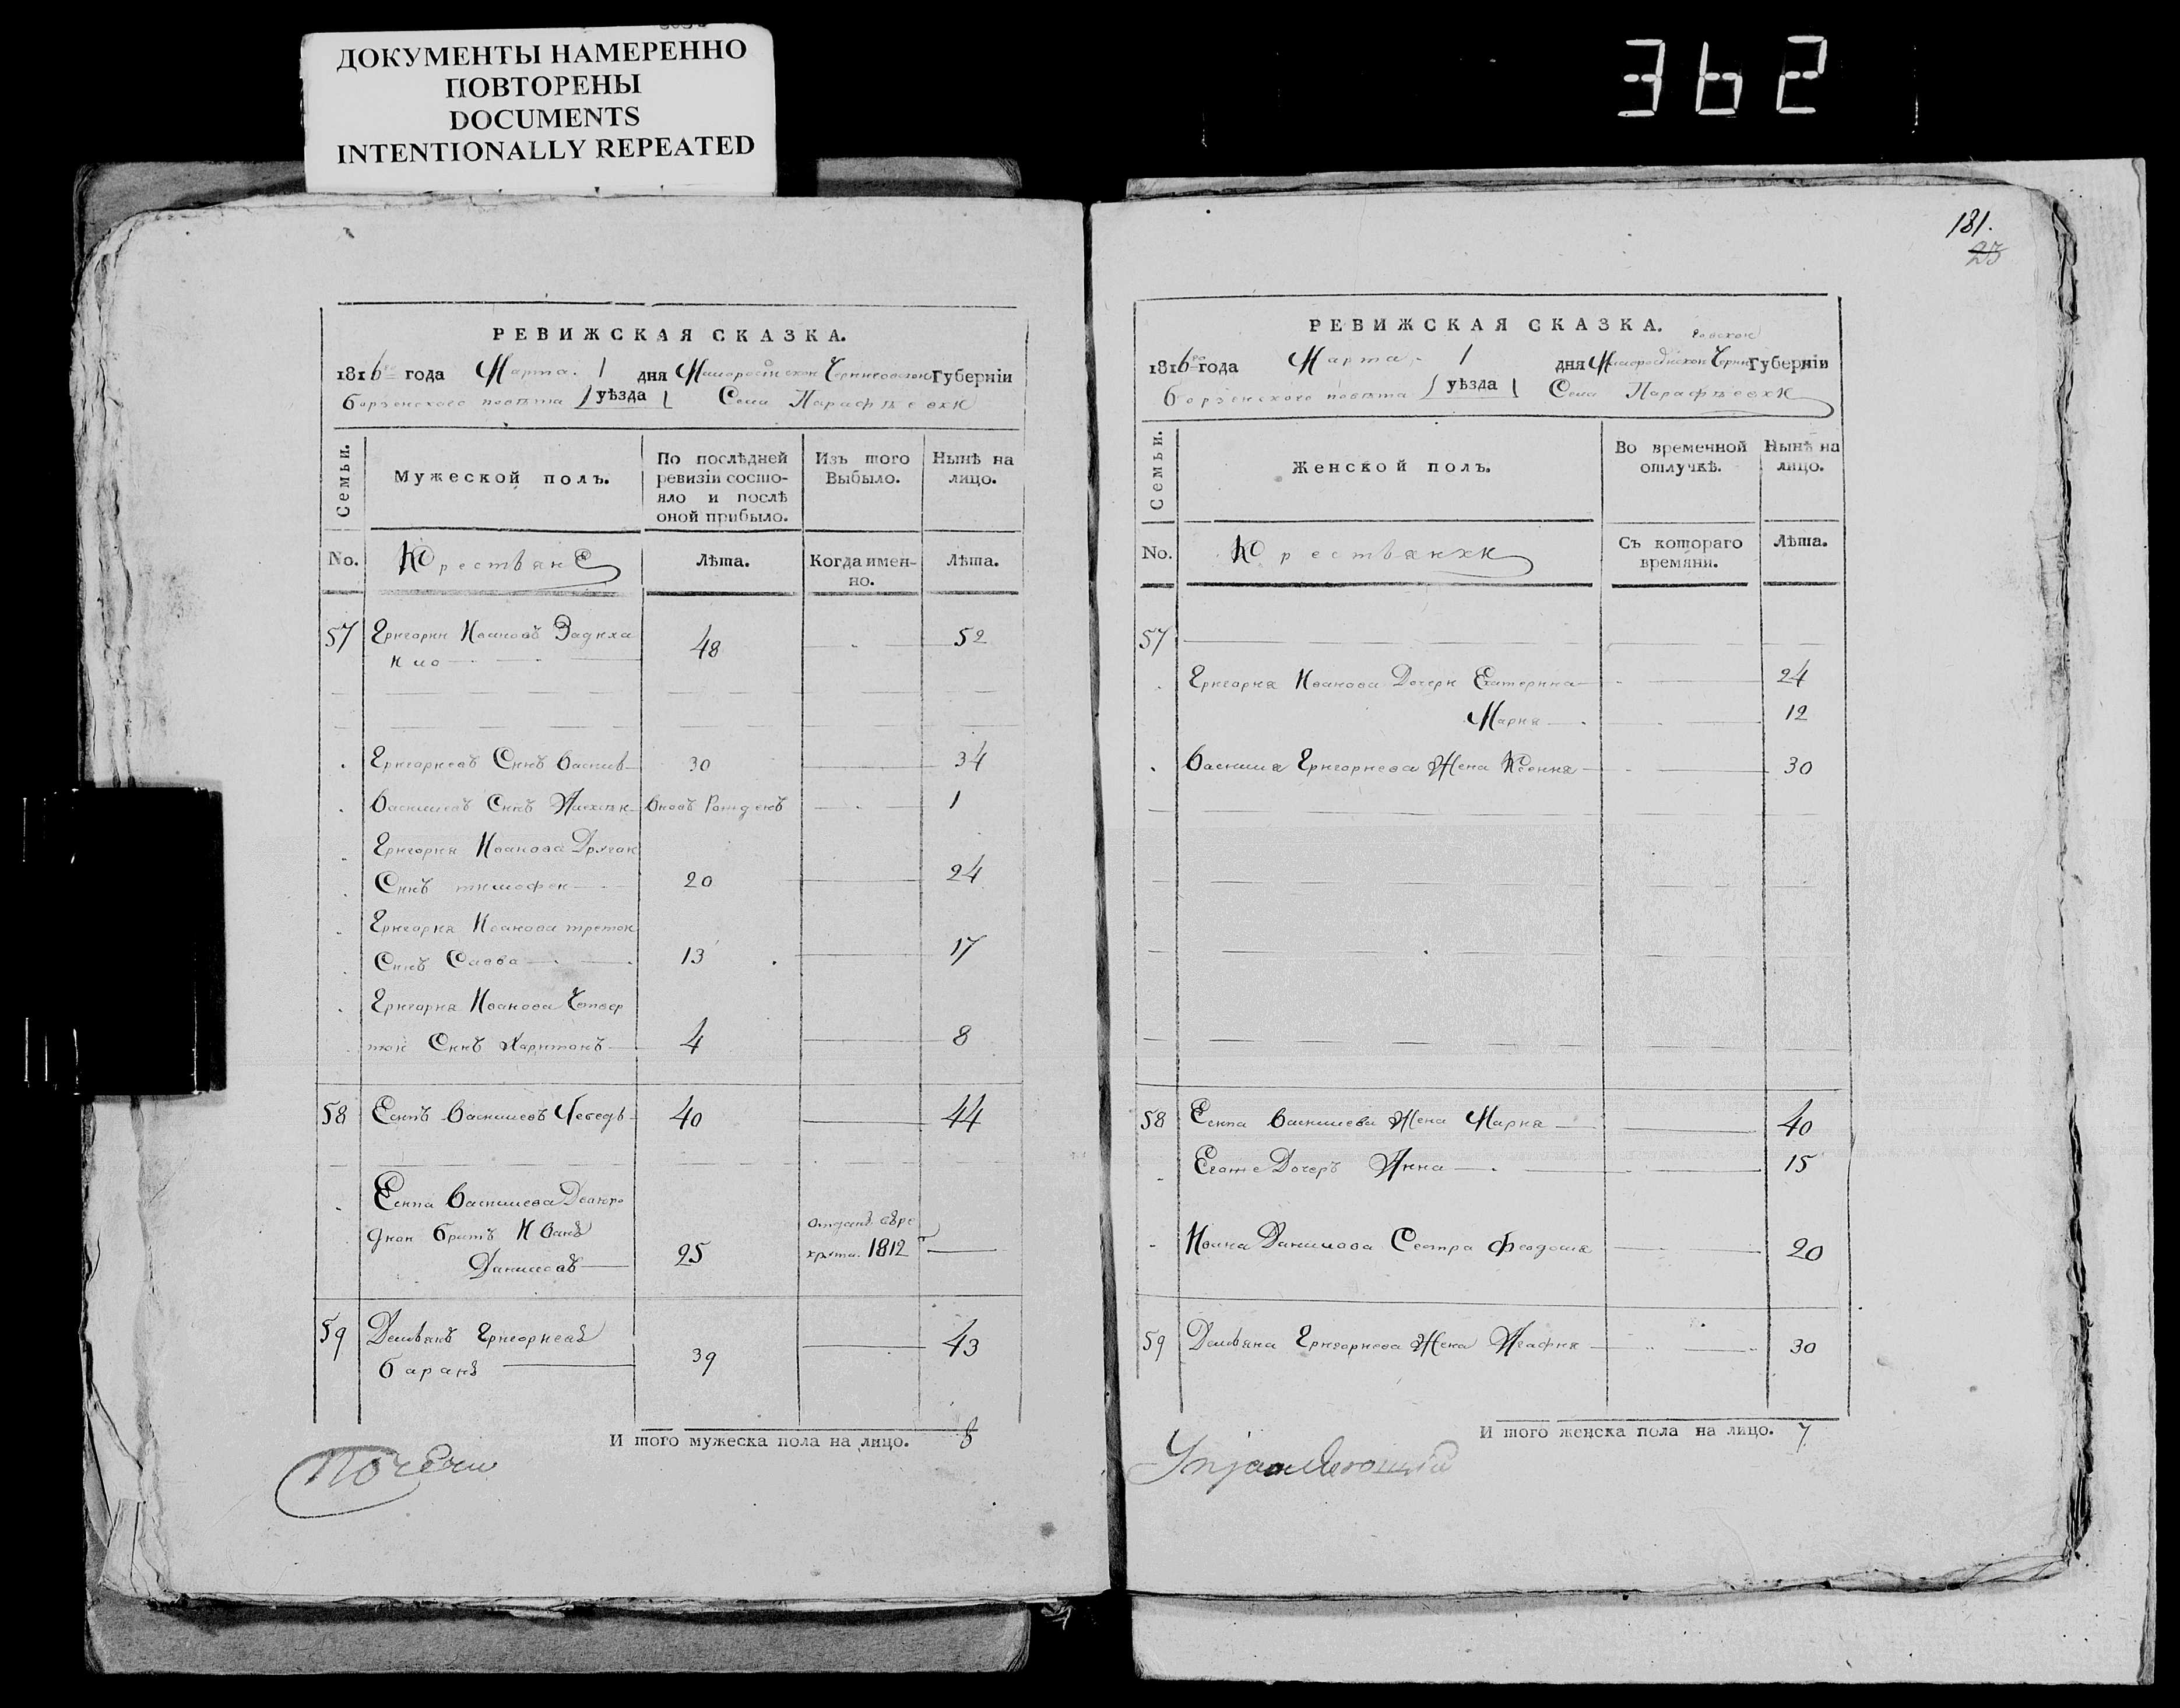 ДОКУМЕНТЫ НАМЕРЕННО
ПОВТОРЕНЫ
DOCUMENTS
INTENTIONALLY REPEATED
362
РЕВИЖСКАЯ СКАЗКА.
1816го года Марта 1 дня Малоросійской Черниговской Губерніи
борзенского повѣта уѣзда Села Парафѣевки
Семьи.
Мужеской полъ.
По послѣдней ревизіи состояло и послѣ оной прибыло.
Изъ того Выбыло.
Нынѣ на лицо.
No.
Крестьяне
Лѣта.
Когда именно.
Лѣта.
57 Григорий Ивановъ
48 52
Григориевъ Синъ Василь 30 34
Василиевъ Синъ Алексѣй Вновь Рожденъ 1
Григория Иванова Другий
Синъ тимофей 20 24
Григория Иванова третой
Синъ Савва 13 17
Григория Иванова Четвер
той Синъ Харитонъ 4 8
58 Есипъ Василиевъ 40 44
Есипа Василиева Двоюро
дной братъ Иванъ
Даниловъ 25 1812
59 Демьянъ Григориевъ
баранъ 39 43
И того мужеска пола на лицо. 8
181.
25
РЕВИЖСКАЯ СКАЗКА.
1816го года Марта 1 дня Малоросійской Черниговской Губерніи
борзенского повѣта уѣзда Села Парафѣевки
Семьи.
Женской полъ.
Во временной отлучкѣ.
Нынѣ на лицо.
No.
Крестьянки
Съ котораго времяни.
Лѣта.
57
Григория Иванова Дочери Екатерина 24
Мария 12
Василия Григориева Жена Ксения 30
58 Есипа Василиева Жена Мария 40
Егоже Дочерь Анна 15
Ивана Данилова Сестра Феодосия 20
59 Демьяна Григориева Жена Агафия 30
И того женска пола на лицо. 7